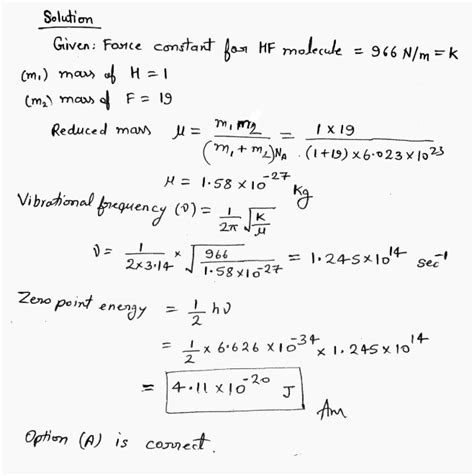 Solution
Given: Force constant for HF molecule = 966 N/m = K
(m₁) mass of H = 1
(m₂) mass of F = 19
Reduced mass μ = m₁ m₂ / (m₁ + m₂)N_A = 1 × 19 / (1+19) × 6.023 × 10²³
μ = 1.58 × 10⁻²⁷ Kg
Vibrational frequency (ν) = 1/2π √K/μ
ν = 1/2×3.14 × √966/1.58×10⁻²⁷ = 1.245 × 10¹⁴ sec⁻¹
Zero point energy = 1/2 hν
= 1/2 × 6.626 × 10⁻³⁴ × 1.245 × 10¹⁴
= 4.11 × 10⁻²⁰ J
Ans
Option (A) is correct.